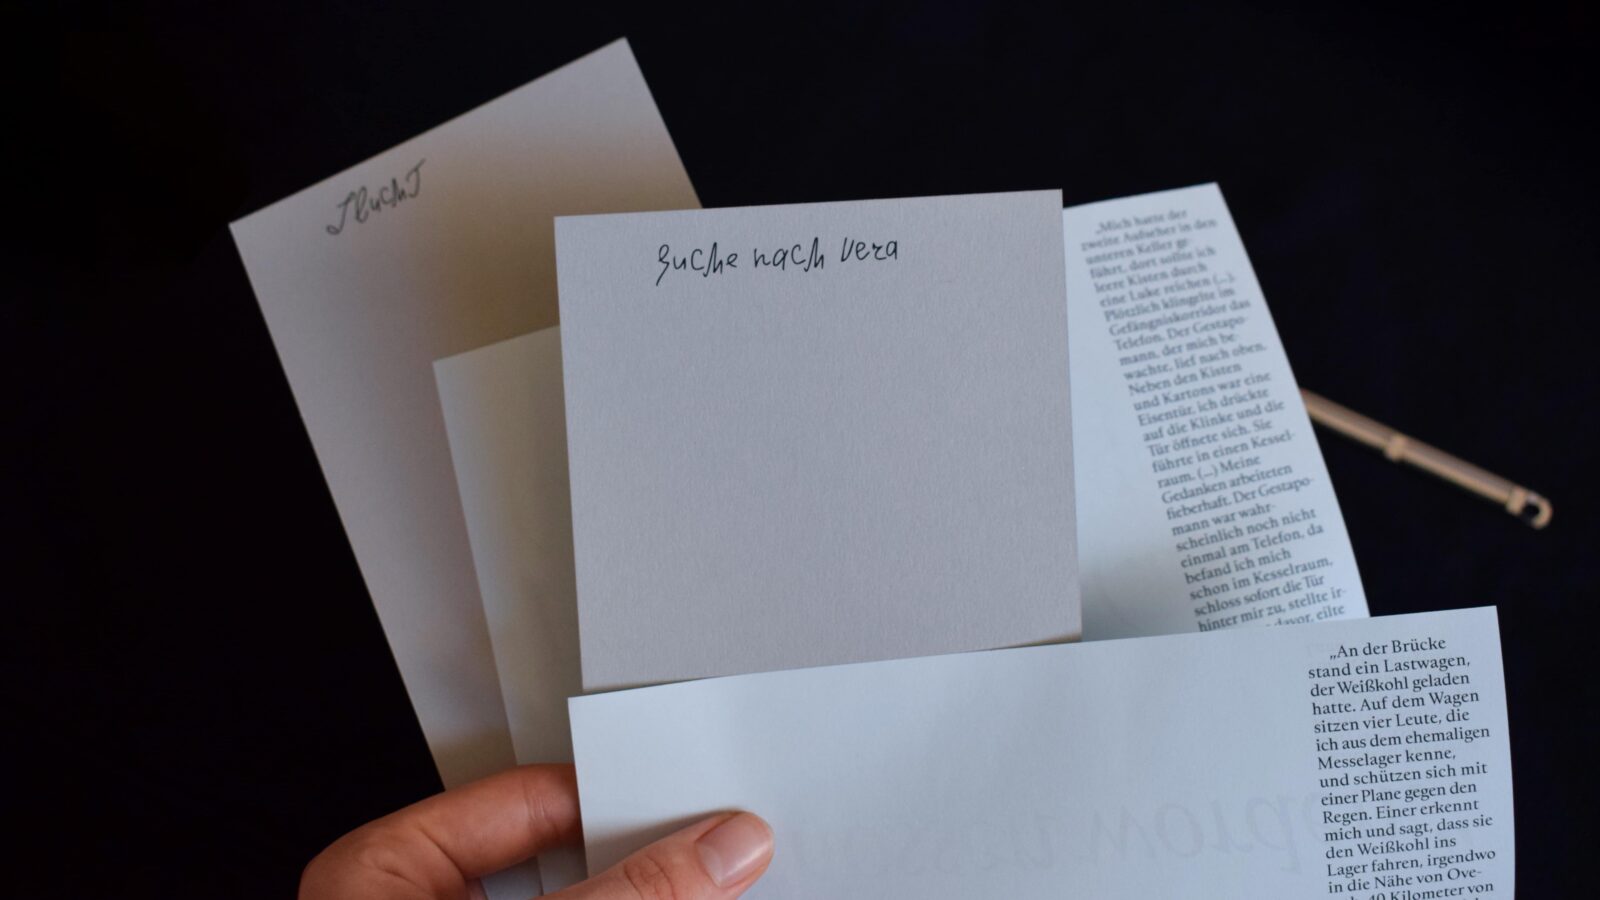 Flucht
Suche nach Vera
„Mich hatte der
zweite Aufseher in den
unseren Keller ge-
führt, dort sollte ich
leere Kisten durch
eine Luke reichen (...).
Plötzlich klingelte im
Gefängniskorridor das
Telefon. Der Gestapo-
mann, der mich be-
wachte, lief nach oben.
Neben den Kisten
und Kartons war eine
Eisentür, ich drückte
auf die Klinke und die
Tür öffnete sich. Sie
führte in einen Kessel-
raum. (...) Meine
Gedanken arbeiteten
fieberhaft. Der Gestapo-
mann war wahr-
scheinlich noch nicht
einmal am Telefon, da
befand ich mich
schon im Kesselraum,
schloss sofort die Tür
hinter mir zu, stellte ir-
davor, eilte
„An der Brücke
stand ein Lastwagen,
der Weißkohl geladen
hatte. Auf dem Wagen
sitzen vier Leute, die
ich aus dem ehemaligen
Messelager kenne,
und schützen sich mit
einer Plane gegen den
Regen. Einer erkennt
mich und sagt, dass sie
den Weißkohl ins
Lager fahren, irgendwo
in die Nähe von Ove-
40 Kilometer von